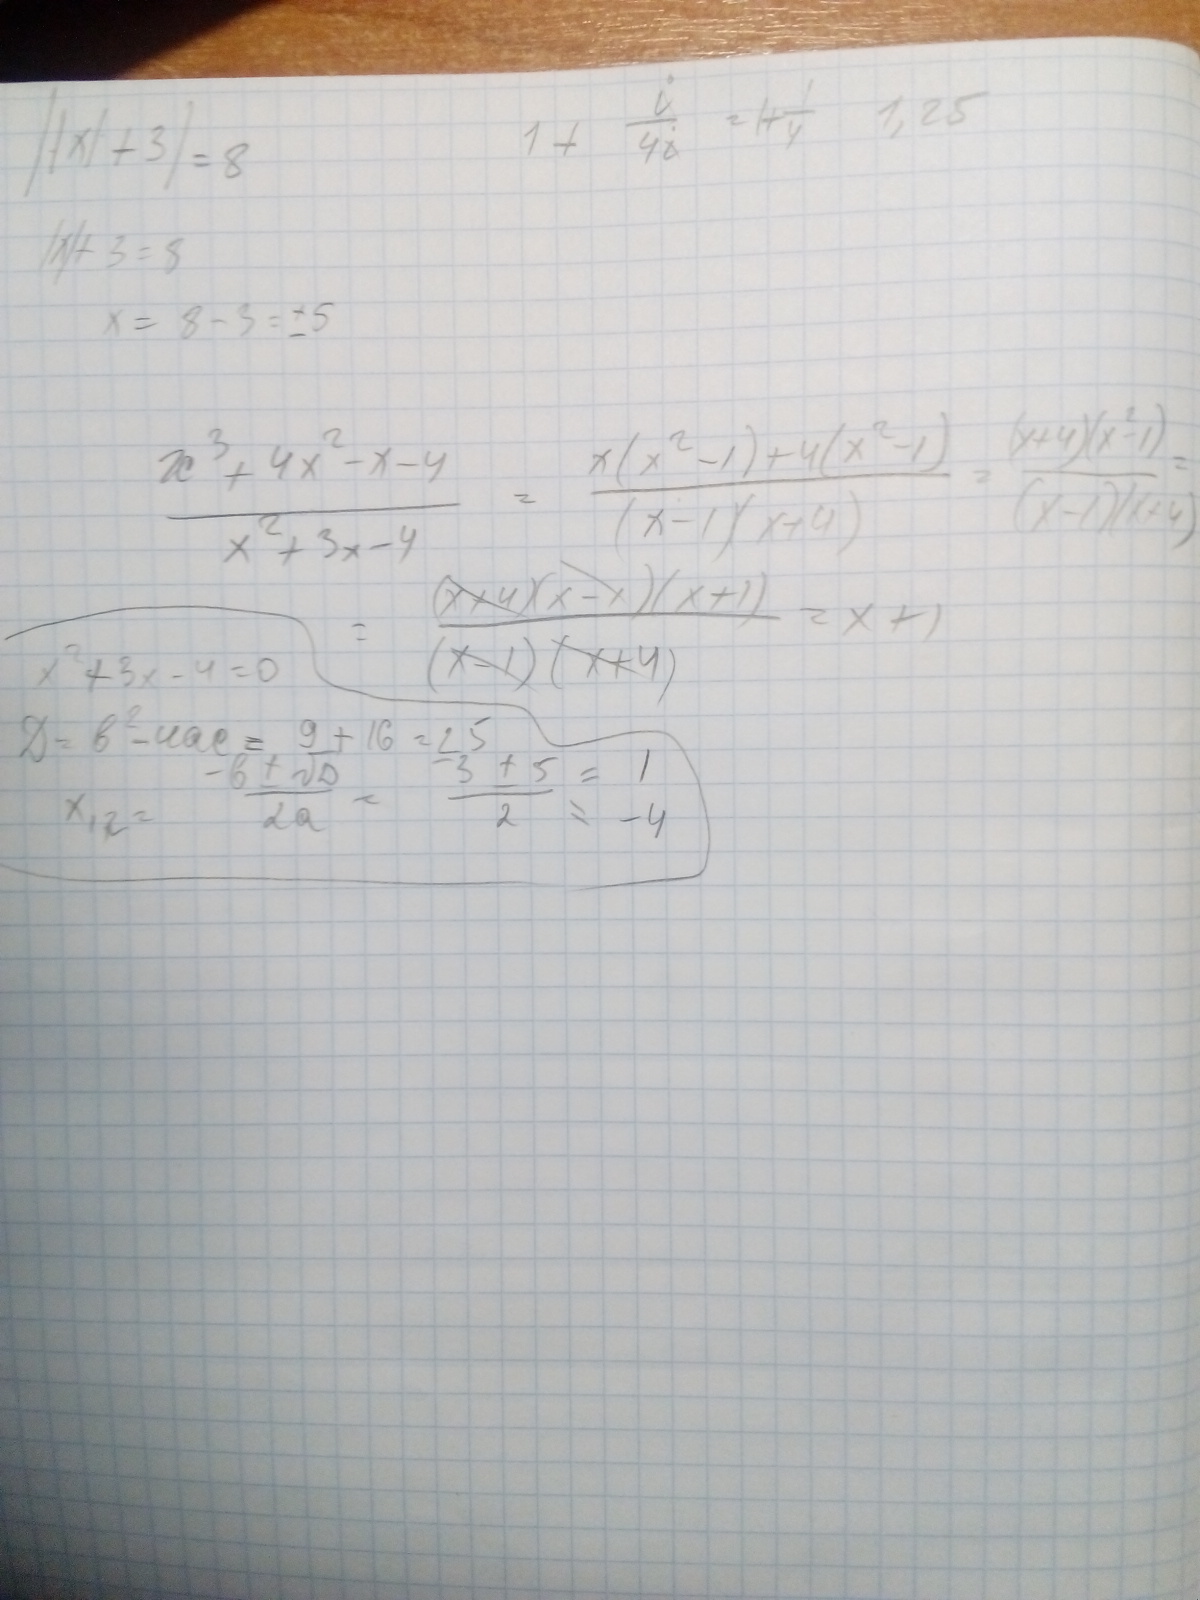 ||x|+3|=8
1+ i/4i =1+1/4 1,25
|x|+3=8
x = 8-3=±5
(x³+4x²-x-4)/(x²+3x-4) = (x(x²-1)+4(x²-1))/((x-1)(x+4)) = ((x+4)(x²-1))/((x-1)(x+4)) =
= ((x+4)(x-1)(x+1))/((x-1)(x+4)) = x+1
x²+3x-4=0
D= b²-4ac = 9+16=25
x₁,₂= (-b±√D)/2a = (-3±5)/2 = 1
= -4